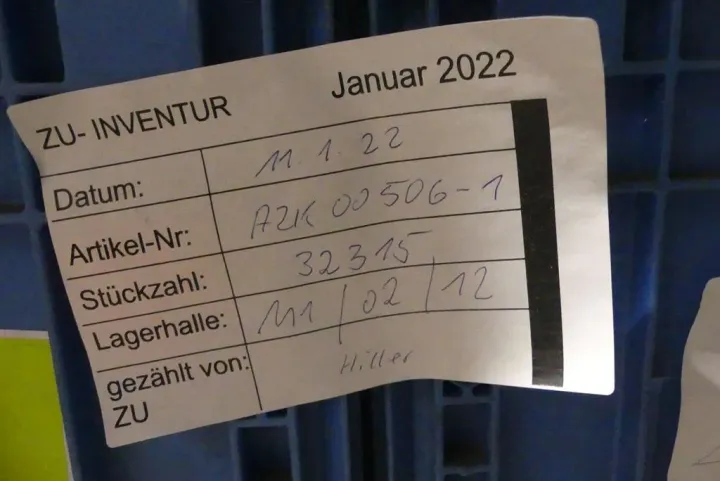 ZU- INVENTUR Januar 2022
Datum: 11.1.22
Artikel-Nr: AZK 00506-1
Stückzahl: 32315
Lagerhalle: M1/02/12
gezählt von: Hiller
ZU